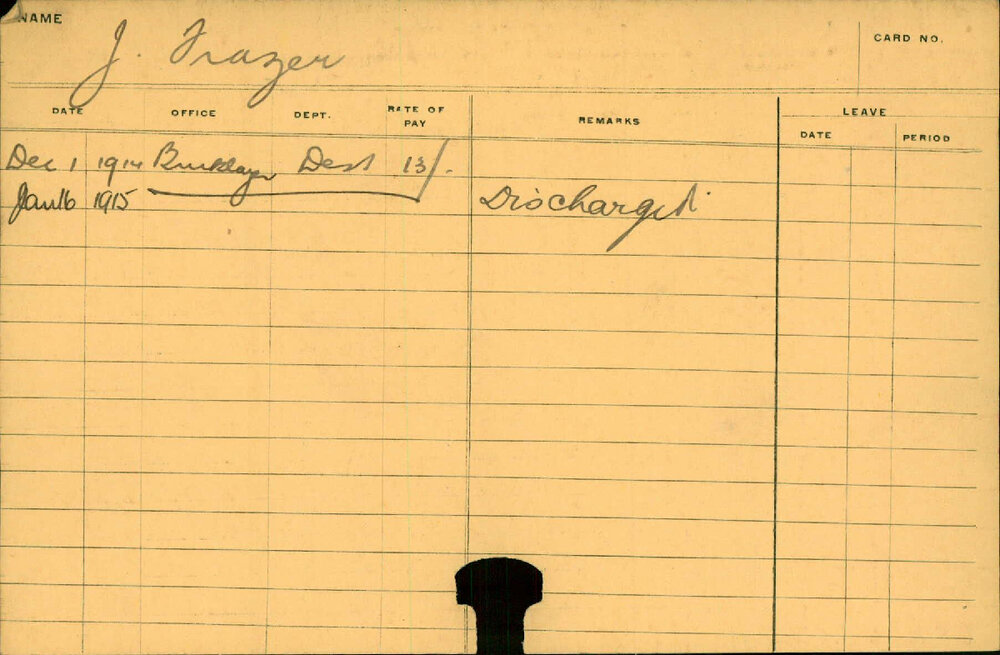 NAME
J. Frazer
CARD NO.
DATE OFFICE DEPT. RATE OF PAY REMARKS LEAVE
DATE PERIOD
Dec 1 1914 Bricklayer Dest 13/-
Jan 16 1915 Discharged